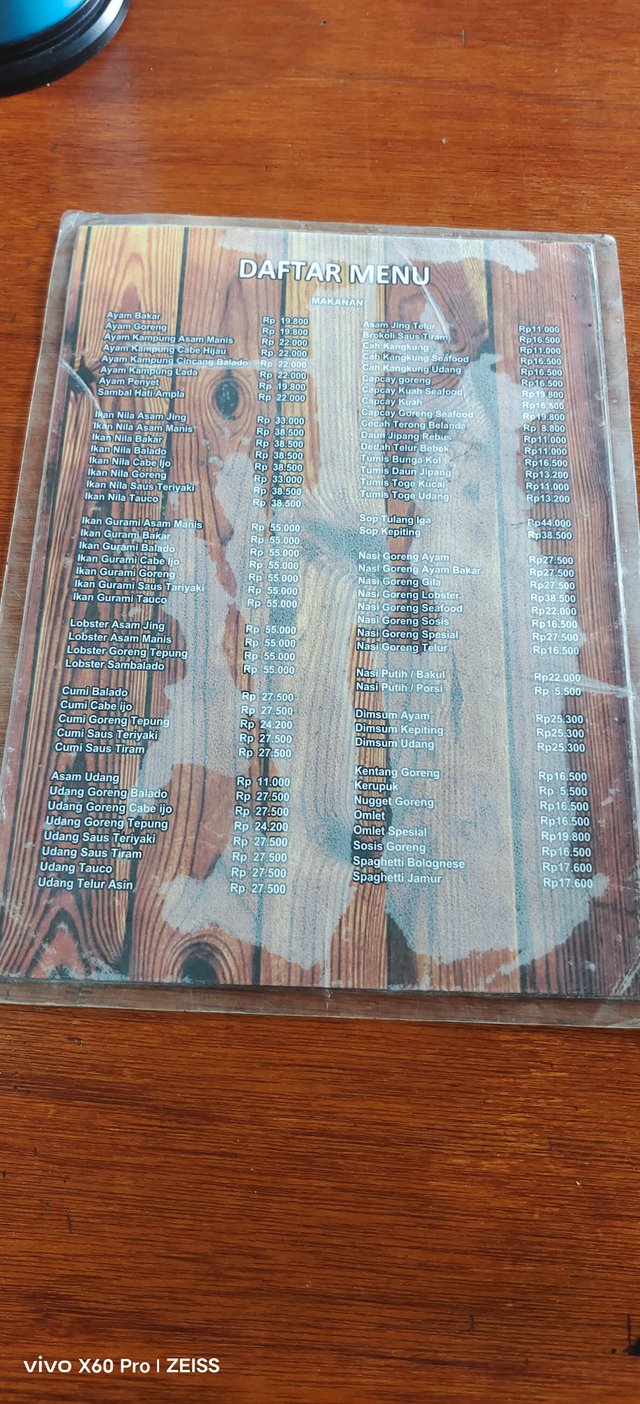 DAFTAR MENU
MAKANAN
Ayam Bakar Rp 19.800
Ayam Goreng Rp 19.800
Ayam Kampung Asam Manis Rp 22.000
Ayam Kampung Cabe Hijau Rp 22.000
Ayam Kampung Cincang Balado Rp 22.000
Ayam Kampung Lada Rp 22.000
Ayam Penyet Rp 19.800
Sambal Hati Ampla Rp 22.000
Ikan Nila Asam Jing Rp 33.000
Ikan Nila Asam Manis Rp 38.500
Ikan Nila Bakar Rp 38.500
Ikan Nila Balado Rp 38.500
Ikan Nila Cabe Ijo Rp 38.500
Ikan Nila Goreng Rp 33.000
Ikan Nila Saus Teriyaki Rp 38.500
Ikan Nila Tauco Rp 38.500
Ikan Gurami Asam Manis Rp 55.000
Ikan Gurami Bakar Rp 55.000
Ikan Gurami Balado Rp 55.000
Ikan Gurami Cabe Ijo Rp 55.000
Ikan Gurami Goreng Rp 55.000
Ikan Gurami Saus Tariyaki Rp 55.000
Ikan Gurami Tauco Rp 55.000
Lobster Asam Jing Rp 55.000
Lobster Asam Manis Rp 55.000
Lobster Goreng Tepung Rp 55.000
Lobster Sambalado Rp 55.000
Cumi Balado Rp 27.500
Cumi Cabe ijo Rp 27.500
Cumi Goreng Tepung Rp 24.200
Cumi Saus Teriyaki Rp 27.500
Cumi Saus Tiram Rp 27.500
Asam Udang Rp 11.000
Udang Goreng Balado Rp 27.500
Udang Goreng Cabe ijo Rp 27.500
Udang Goreng Tepung Rp 24.200
Udang Saus Teriyaki Rp 27.500
Udang Saus Tiram Rp 27.500
Udang Tauco Rp 27.500
Udang Telur Asin Rp 27.500
Asam Jing Telur Rp11.000
Brokoli Saus Tiram Rp16.500
Cah Kangkung Rp11.000
Cah Kangkung Seafood Rp16.500
Cah Kangkung Udang Rp16.500
Capcay goreng Rp16.500
Capcay Kuah Seafood Rp19.800
Capcay Kuah Rp16.500
Capcay Goreng Seafood Rp19.800
Cecah Terong Belanda Rp 8.800
Daun Jipang Rebus Rp11.000
Dedah Telur Bebek Rp11.000
Tumis Bunga Kol Rp16.500
Tumis Daun Jipang Rp13.200
Tumis Toge Kucai Rp11.000
Tumis Toge Udang Rp13.200
Sop Tulang Iga Rp44.000
Sop Kepiting Rp38.500
Nasi Goreng Ayam Rp27.500
Nasi Goreng Ayam Bakar Rp27.500
Nasi Goreng Gila Rp27.500
Nasi Goreng Lobster Rp38.500
Nasi Goreng Seafood Rp22.000
Nasi Goreng Sosis Rp16.500
Nasi Goreng Spesial Rp27.500
Nasi Goreng Telur Rp16.500
Nasi Putih / Bakul Rp22.000
Nasi Putih / Porsi Rp 5.500
Dimsum Ayam Rp25.300
Dimsum Kepiting Rp25.300
Dimsum Udang Rp25.300
Kentang Goreng Rp16.500
Kerupuk Rp 5.500
Nugget Goreng Rp16.500
Omlet Rp16.500
Omlet Spesial Rp19.800
Sosis Goreng Rp16.500
Spaghetti Bolognese Rp17.600
Spaghetti Jamur Rp17.600
vivo X60 Pro | ZEISS